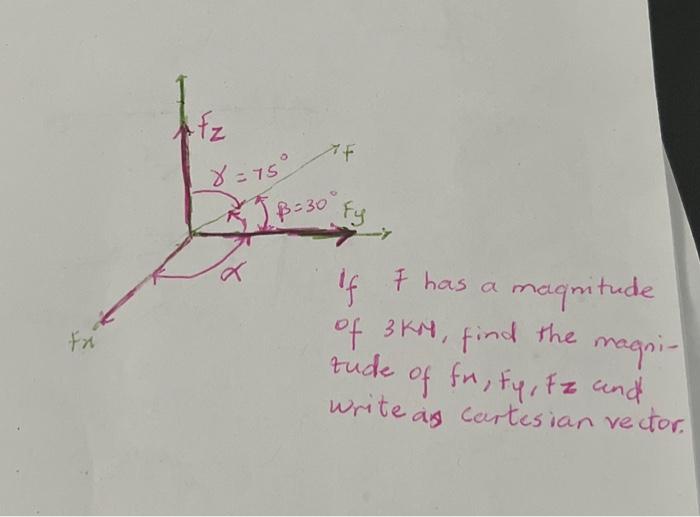 Fz
F
γ = 75°
β=30°
Fy
α
Fx
If F has a magnitude
of 3KN, find the magni-
tude of fx, Fy, Fz and
write as cartesian vector.